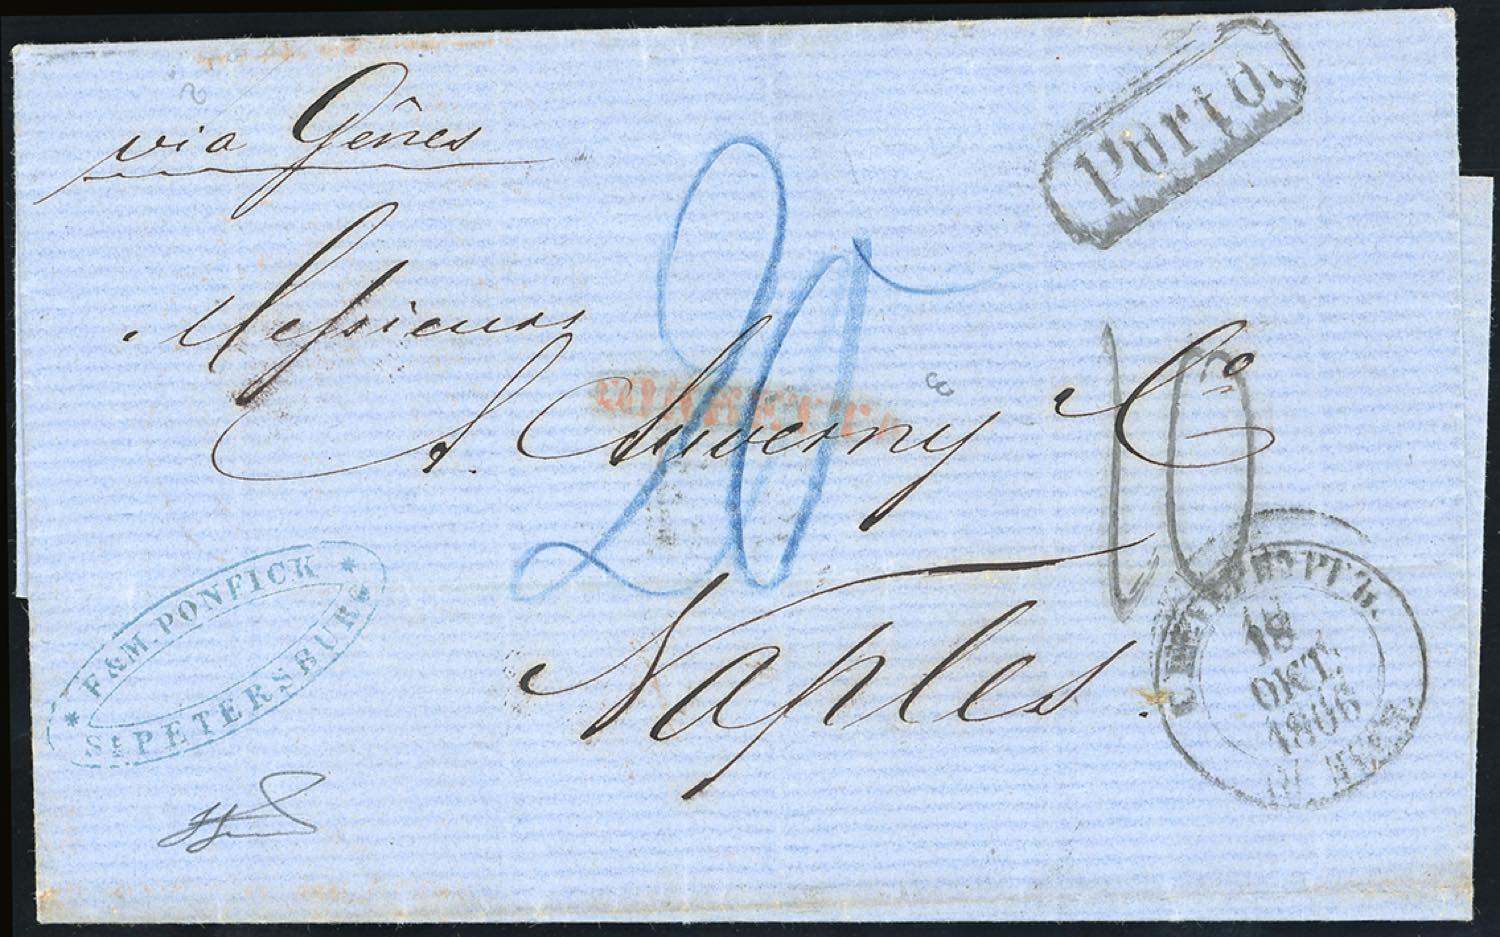 via Gênes
Porto.
Messieurs
A. Auverny Co
20
10
Naples.
F&M. PONFICK
St PETERSBURG
18
ОКТ.
1866